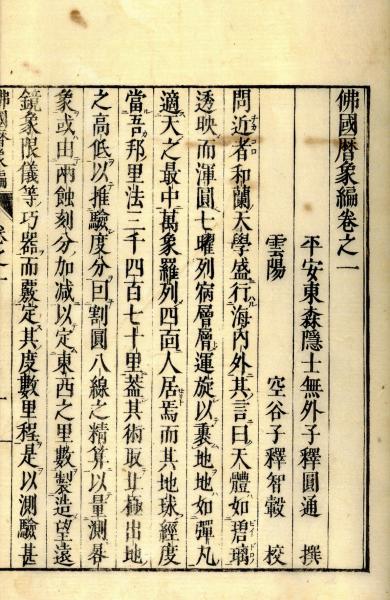 佛國曆象編卷之一
平安東森隱士無外子釋圓通 撰
雲陽 空谷子釋智轂 校
問近者和蘭天學盛行海內外其言曰天體如碧璃
透映而渾圓七曜列宿層層運旋以裹地地如彈丸
適天之最中萬象羅列四面人居焉而其地球經度
當吾邦里法三千四百七十里葢其術取北極出地
之高低以推驗度分曰割圓八線之精算以量測晷
象或由兩蝕刻分加減以定東西之里數製造望遠
鏡象限儀等巧器而覈定其度數里程是以測驗甚
佛國曆象編 卷之一 一